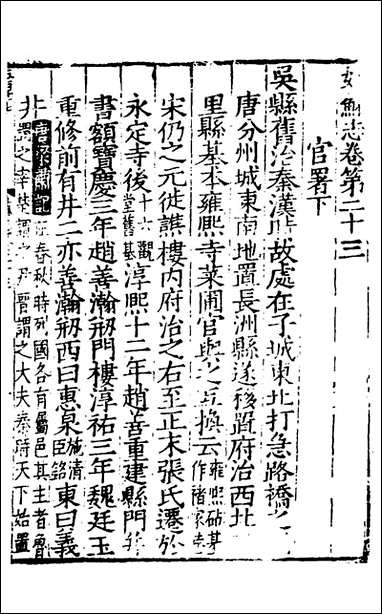 姑蘇志卷第二十三
官署下
吳縣舊治秦漢時故處在子城東北打急路橋之
唐分州城東南地置長洲縣遂移置府治西北
里縣基本雍熙寺菜圃官與之互換云雍熙砧基作褚家
宋仍之元徙譙樓內府治之右至正末張氏遷於
永定寺後十六觀堂舊基淳熙十二年趙善重建縣門
書額寶慶三年趙善瀚剏門樓淳祐三年魏廷玉
重修前有井二亦善瀚剏西曰惠泉施清臣銘東曰義
井唐梁肅記云春秋時列國各有屬邑其主者魯謂之宰楚謂之尹晉謂之大夫秦時天下始置